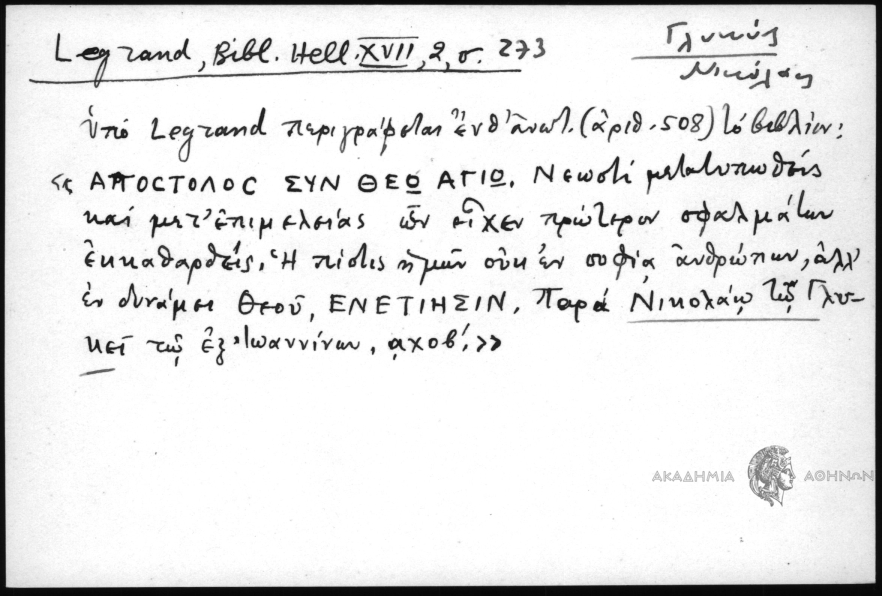 Legrand, Bibl. Hell. XVII, 2, σ. 273
Γλυκύς
Νικόλαος
ὑπό Legrand περιγράφεται ἐνθ' ἀνωτ. (ἀριθ. 508) τό βιβλίον:
«ΑΠΟΣΤΟΛΟΣ ΣΥΝ ΘΕΩ ΑΓΙΩ. Νεωστί μετατυπωθείς
καί μετ' ἐπιμελείας ὧν εἶχεν πρώτερον σφαλμάτων
ἐκκαθαρθείς. Ἡ πίστις ἡμῶν οὐκ ἐν σοφίᾳ ἀνθρώπων, ἀλλ'
ἐν δυνάμει Θεοῦ, ΕΝΕΤΙΗΣΙΝ. Παρά Νικολάῳ τῷ Γλυ-
κεῖ τῷ ἐξ Ἰωαννίνων, αχοβ'.»
ΑΚΑΔΗΜΙΑ ΑΘΗΝΩΝ